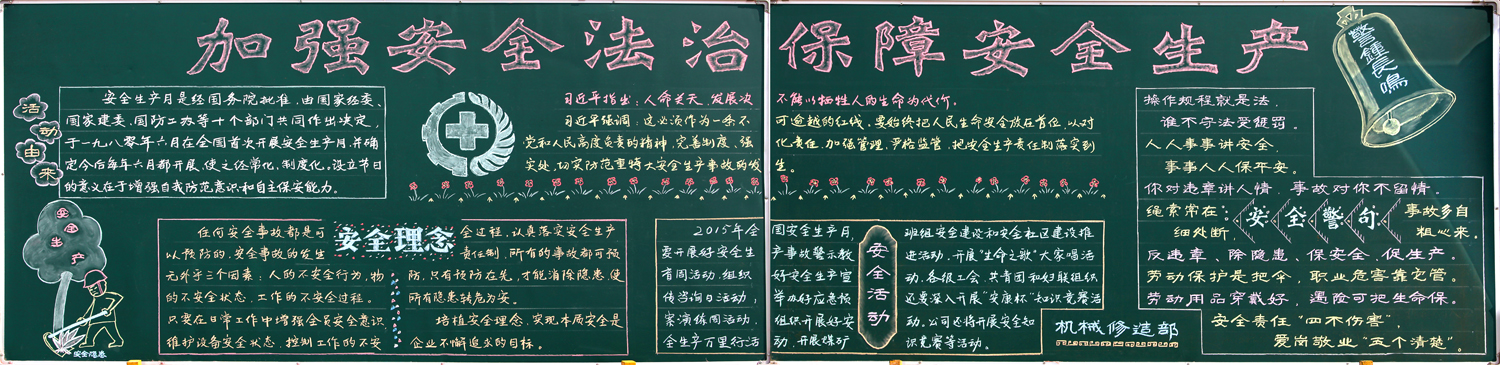 加强安全法治 保障安全生产
活动由来
安全生产月是经国务院批准,由国家经委、
国家建委、国防工办等十个部门共同作出决定,
于一九八零年六月在全国首次开展安全生产月,并确
定今后每年六月都开展,使之经常化、制度化。设立节日
的意义在于增强自我防范意识和自主保安能力。
习近平指出:人命关天,发展决不能以牺牲人的生命为代价。
习近平强调:这必须作为一条不可逾越的红线。要始终把人民生命安全放在首位,以对
党和人民高度负责的精神,完善制度、强化责任、加强管理、严格监管,把安全生产责任制落实到
实处,切实防范重特大安全生产事故的发生。
警鍾長鳴
安全生产
安全隐患
安全理念
任何安全事故都是可
以预防的,安全事故的发生
无外于三个因素:人的不安全行为,物
的不安全状态,工作的不安全过程。
只要在日常工作中增强全员安全意识,
维护设备安全状态,控制工作的不安
全过程,认真落实安全生产
责任制,所有的事故都可预
防,只有预防在先,才能消除隐患,使
所有隐患转危为安。
培植安全理念,实现本局安全是
企业不懈追求的目标。
2015年全国安全生产月,
要开展好安全生产事故警示教
育周活动,组织好安全生产宣
传咨询日活动,举办好应急预
案演练周活动,组织开展好安
全生产万里行活动,开展煤矿
安全活动
班组安全建设和安全社区建设推
进活动,开展"生命之歌"大家唱活
动。各级工会、共青团和妇联组织
还要深入开展"安康杯"知识竞赛活
动。公司还将开展安全知
识竞赛等活动。
机械修造部
操作规程就是法,
谁不守法受惩罚。
人人事事讲安全,
事事人人保平安。
你对违章讲人情,事故对你不留情。
绳索常在细处断,
安全警句
事故多自粗心来。
反违章、除隐患、保安全、促生产。
劳动保护是把伞,职业危害靠它管。
劳动用品穿戴好,遇险可把生命保。
安全责任"四不伤害",
爱岗敬业"五个清楚"。